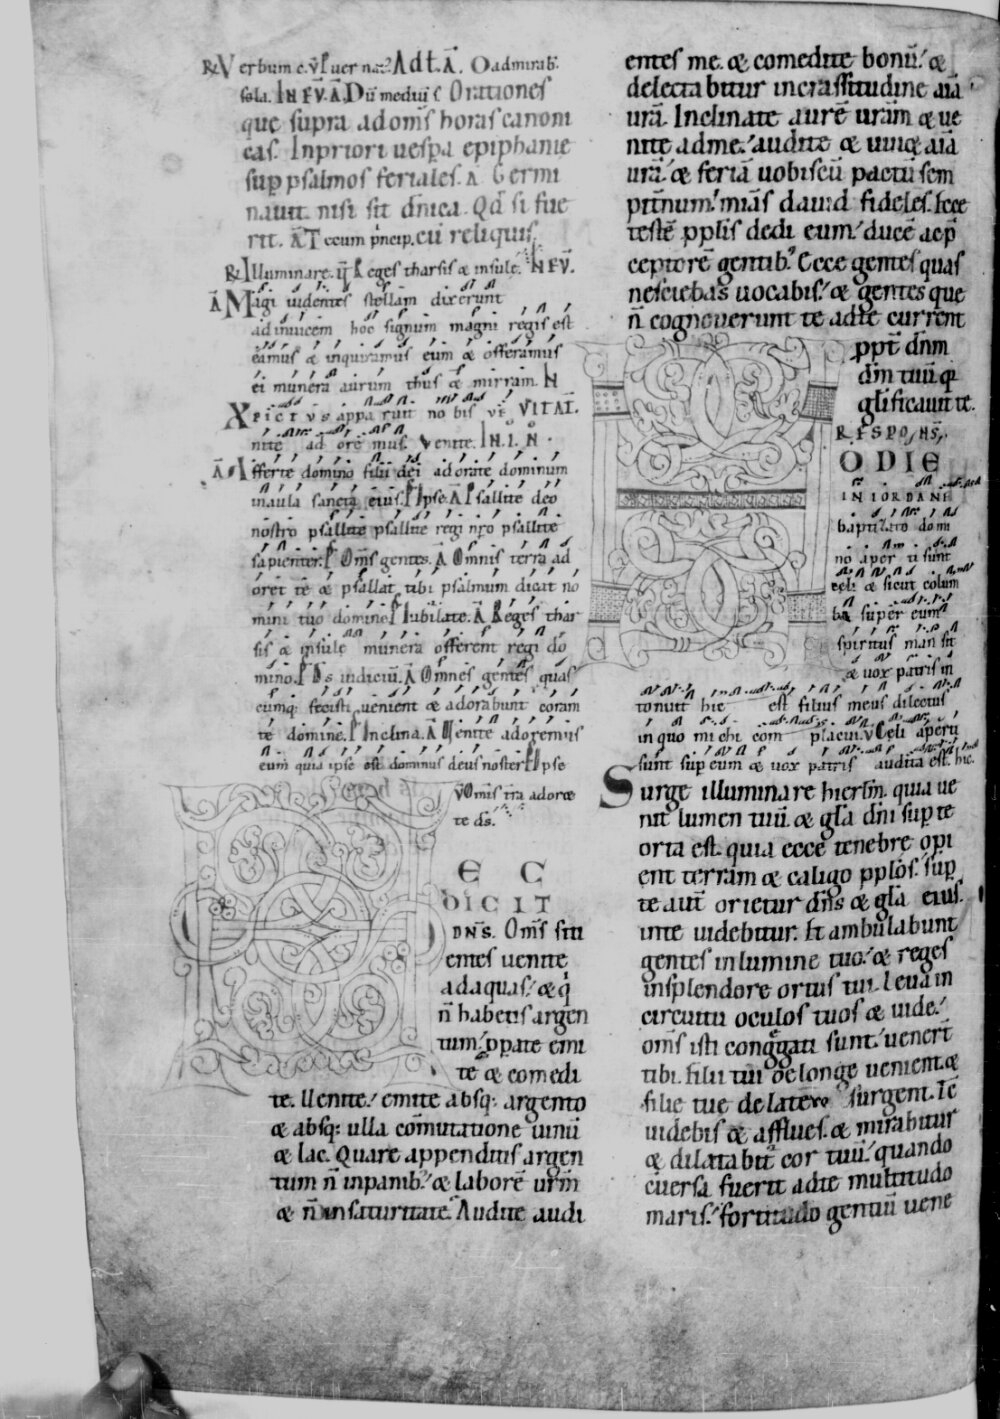 Verbum c. v̄ Puer nat: Ad t.A. O admirab:
sola. IN EV. A. Dū mediū s Orationes
que supra ad om̄s horas canoni
cas. In priori uesp̄a epiphanie
sup psalmos feriales. A Germi
nauit. nisi sit dn̄ica. Qd̄ si fue
rit. A Tecum p̄ncip. cū reliquis
R Illuminare. v̄ Reges tharsis & insule. IN EV.
A Magi uidentes stellam dixerunt
ad inuicem hoc signum magni regis est
eamus & inquiramus eum & offeramus
ei munera aurum thus & mirram. IN
XPICTVS apparuit nobis VITAT.
nite adoremus. Venite. IN .I. N.
A Afferte domino filii dei adorate dominum
in aula sancta eius. P Ipse. A Psallite deo
nostro psallite psallite regi nr̄o psallite
sapienter. P Om̄s gentes. A Omnis terra ad
oret te & psallat tibi psalmum dicat no
mini tuo domine P Iubilate. A Reges thar
sis & insule munera offerent regi do
mino. P Ds iudiciū. A Omnes gentes quas
cumq: fecisti uenient & adorabunt coram
te domine. P Inclina. A Uenite adoremus
eum quia ipse est dominus deus noster P Ipse
v̄ Omis tr̄a adoræ
te ds.
EC
DICIT
DN̄S. Om̄s siti
entes uenite
ad aquas. & q
n̄ habetis argen
tum. pperate emi
te & comedi
te. Uenite. emite absq: argento
& absq: ulla com̄utatione uinū
& lac. Quare appenditis argen
tum n̄ in panib: & laborē urm̄
& n̄ in saturitate. Audite audi
entes me. & comedite bonū. &
delectabitur in crassitudine aīa
urā. Inclinate aurē urām & ue
nite ad me. audite & uiuæ aīa
urā. & feriā uobiscū pactū sem
pit̄num. mīas dauid fideles. Ecce
testē pplis dedi eum. ducē acp
ceptorē gentib: Ecce gentes quas
nesciebas uocabis. & gentes que
n̄ cognouerunt te ad te current
ppt̄ dn̄m
dm̄ tuū q
glificauit te.
RESPONS.
ODIE
IN IORDANE
baptizato domi
no aperti sunt
celi & sicut colum
ba super eum
spiritus mansit
& uox patris in
tonuit hic est filius meus dilectus
in quo michi complacui. V Celi aperti
sunt sup eum & uox patris audita est. hic.
Surge illuminare hierl̄m. quia ue
nit lumen tuū. & glā dn̄i sup te
orta est. quia ecce tenebre opi
ent terram & caligo pplōs. sup
te aut̄ orietur dn̄s & glā eius.
in te uidebitur. Et ambulabunt
gentes in lumine tuo. & reges
in splendore ortus tui. Leua in
circuitu oculos tuos & uide.
om̄s isti conggati sunt. uenert̄
tibi. filii tui de longe uenient. &
filie tue de latere surgent. Tc̄
uidebis & afflues. & mirabitur
& dilatabit̄ cor tuū. quando
c̄uersa fuerit ad te multitudo
maris. fortitudo gentiū uene